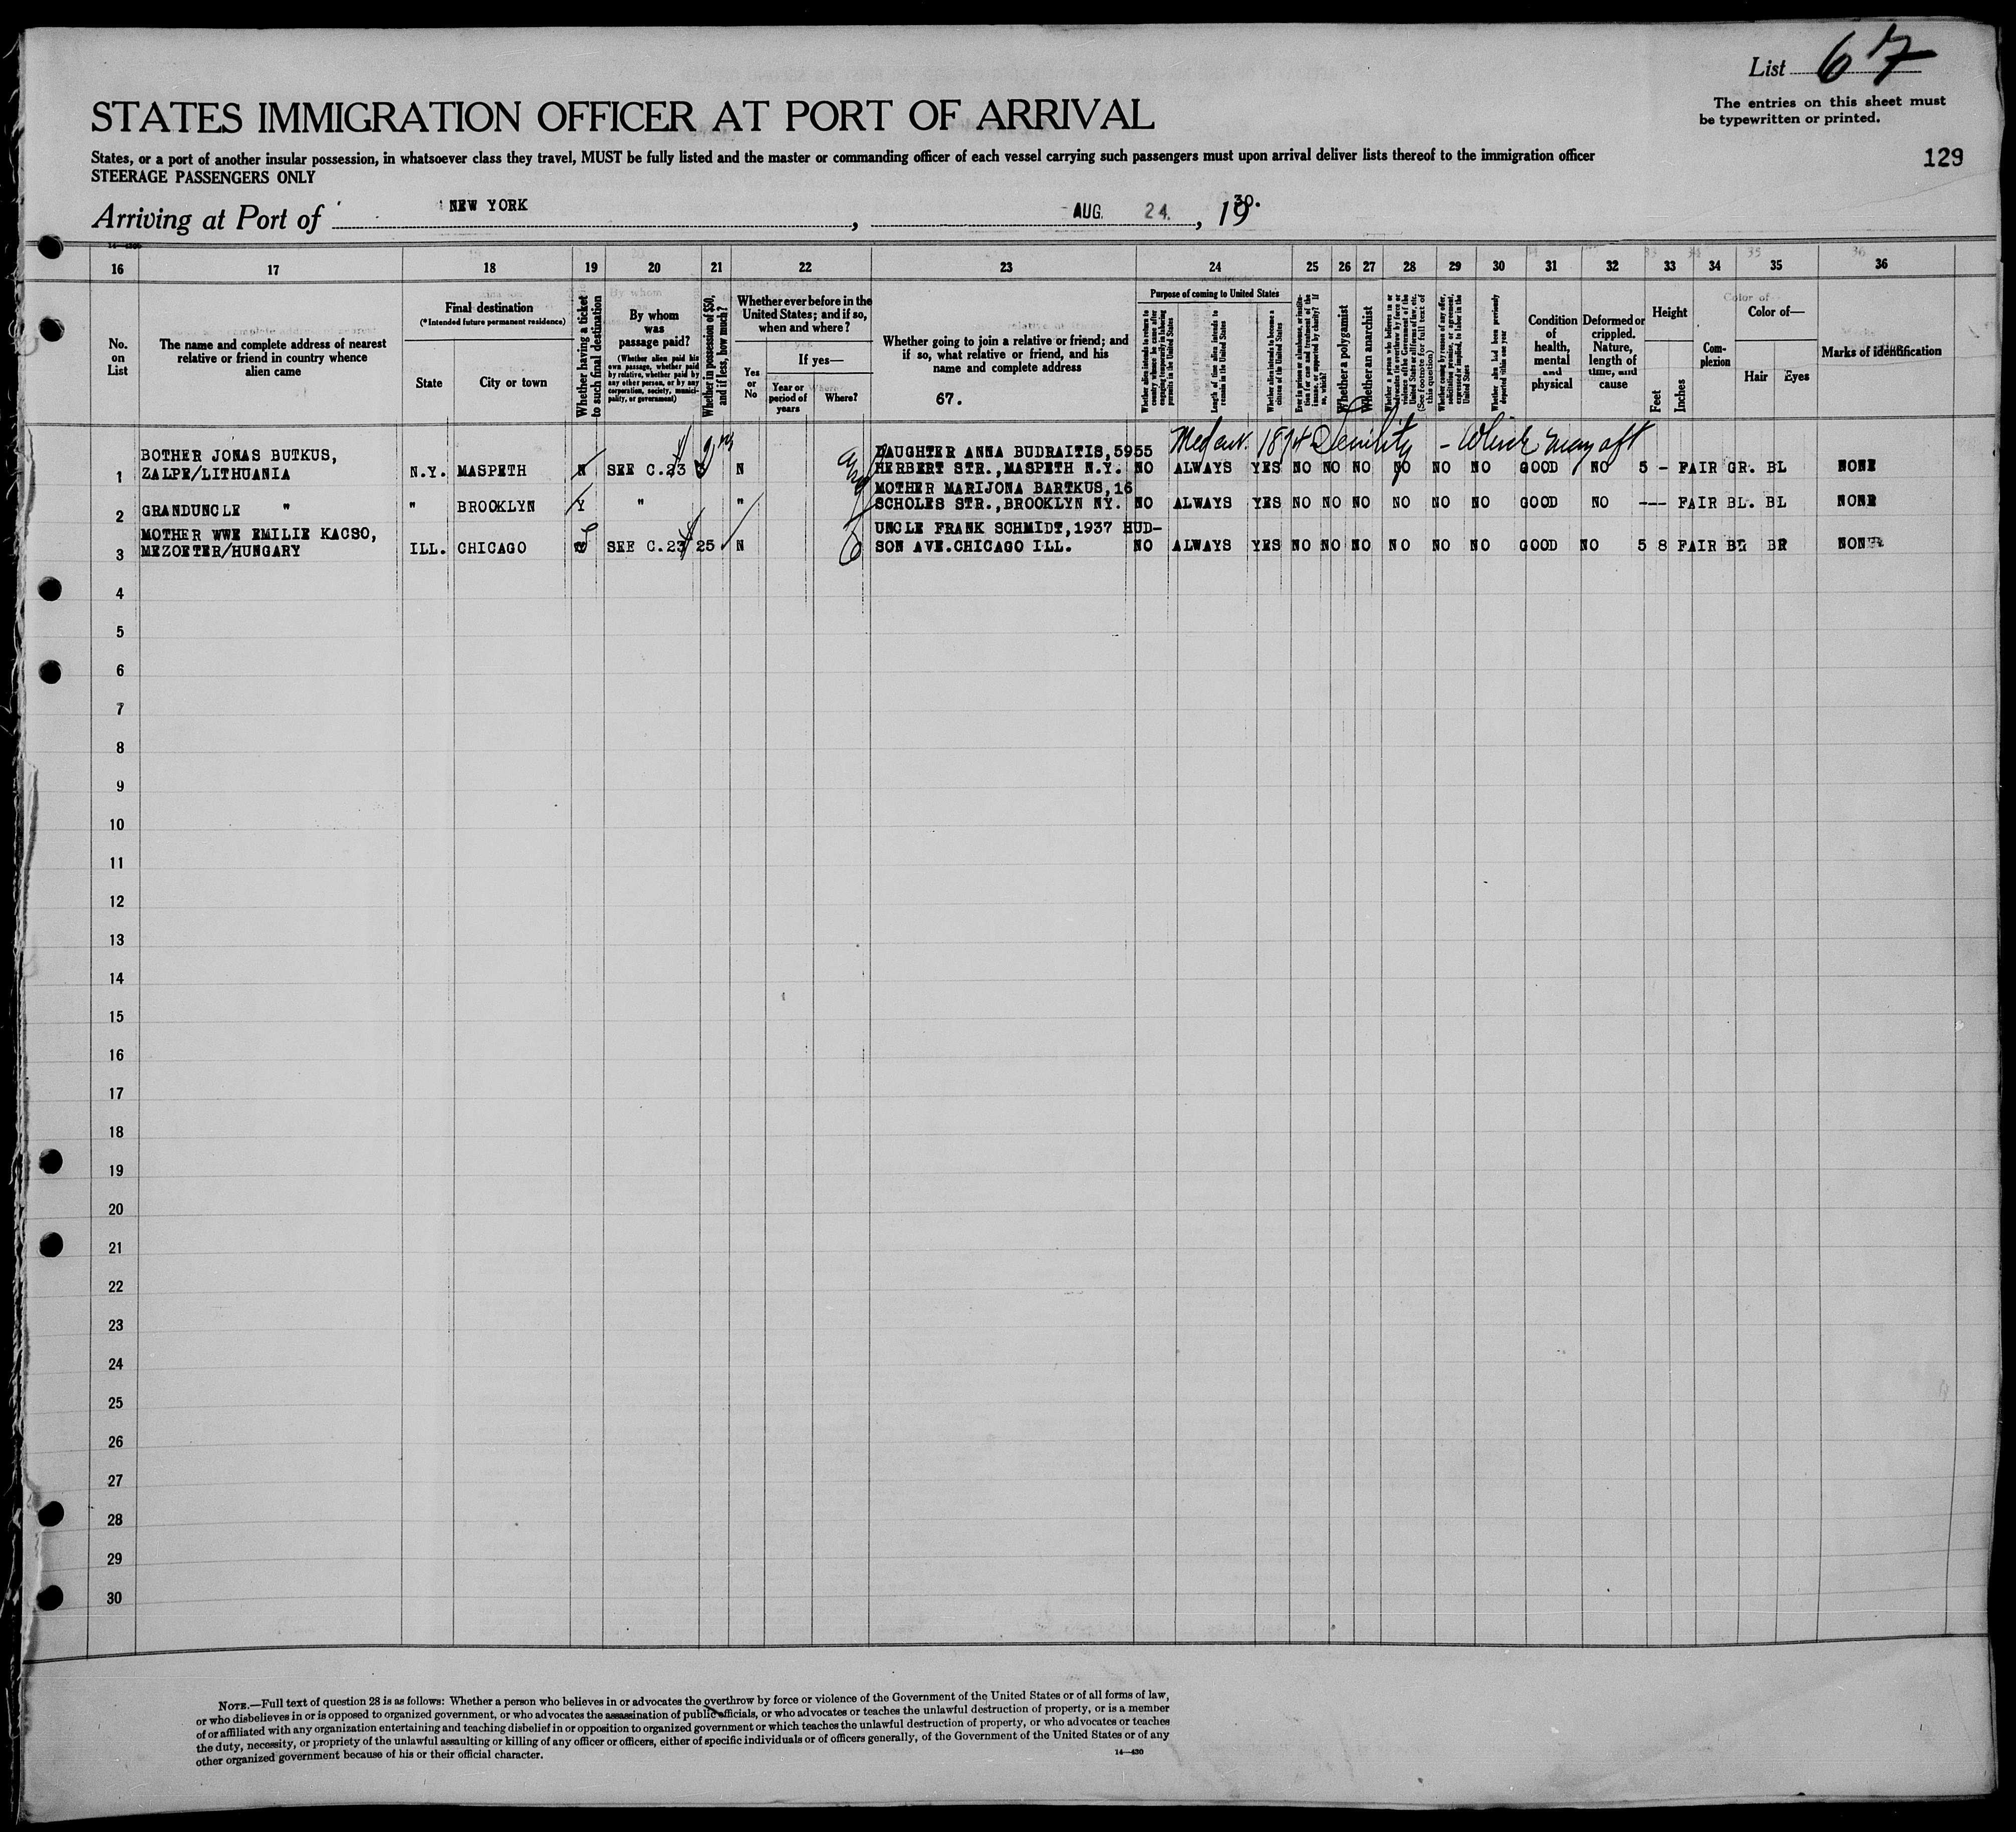 List 67
The entries on this sheet must
be typewritten or printed.
STATES IMMIGRATION OFFICER AT PORT OF ARRIVAL
129
States, or a port of another insular possession, in whatsoever class they travel, MUST be fully listed and the master or commanding officer of each vessel carrying such passengers must upon arrival deliver lists thereof to the immigration officer
STEERAGE PASSENGERS ONLY
Arriving at Port of NEW YORK, AUG. 24., 1930.
16 17 18 19 20 21 22 23 24 25 26 27 28 29 30 31 32 33 34 35 36
No. on List
The name and complete address of nearest
relative or friend in country whence
alien came
Final destination
(*Intended future permanent residence)
State
City or town
Whether having a ticket
to such final destination
By whom
was
passage paid?
(Whether alien paid his
own passage, whether paid
by relative, whether paid by
any other person, or by any
corporation, society, munici-
pality, or government)
Whether in possession of $50,
and if less, how much?
Whether ever before in the
United States; and if so,
when and where?
Yes
or
No
If yes—
Year or
period of
years
Where?
Whether going to join a relative or friend; and
if so, what relative or friend, and his
name and complete address
67.
Purpose of coming to United States
Whether alien intends to return to
country whence he came after
engaging temporarily in laboring
pursuits in the United States
Length of time alien intends to
remain in the United States
Whether alien intends to become a
citizen of the United States
Ever in prison or almshouse, or institu-
tion for care and treatment of the
insane, or supported by charity? If
so, which?
Whether a polygamist
Whether an anarchist
Whether a person who believes in or
advocates the overthrow by force or
violence of the Government of the
United States or all forms of law, etc.
(See footnote for full text of
this question)
Whether coming by reason of any offer,
solicitation, promise, or agreement,
expressed or implied, to labor in the
United States
Whether alien had been previously
deported within one year
Condition
of
health,
mental
and
physical
Deformed or
crippled.
Nature,
length of
time, and
cause
Height
Feet
Inches
Com-
plexion
Color of—
Hair
Eyes
Marks of identification
Senility - Which may aft
BOTHER JONAS BUTKUS, DAUGHTER ANNA BUDRAITIS,5955
1 ZALPE/LITHUANIA N.Y. MASPETH N SEE C.23 N HERBERT STR.,MASPETH N.Y. NO ALWAYS YES NO NO NO NO NO NO GOOD NO 5 - FAIR GR. BL NONE
MOTHER MARIJONA BARTKUS,16
2 GRANDUNCLE " " BROOKLYN Y " " SCHOLES STR.,BROOKLYN NY. NO ALWAYS YES NO NO NO NO NO NO GOOD NO --- FAIR BL. BL NONE
MOTHER WWE EMILIE KACSO, UNCLE FRANK SCHMIDT,1937 HUD-
3 MEZOETER/HUNGARY ILL. CHICAGO SEE C.23 25 N SON AVE.CHICAGO ILL. NO ALWAYS YES NO NO NO NO NO NO GOOD NO 5 8 FAIR BR BR NONE
4
5
6
7
8
9
10
11
12
13
14
15
16
17
18
19
20
21
22
23
24
25
26
27
28
29
30
NOTE.—Full text of question 28 is as follows: Whether a person who believes in or advocates the overthrow by force or violence of the Government of the United States or of all forms of law,
or who disbelieves in or is opposed to organized government, or who advocates the assassination of public officials, or who advocates or teaches the unlawful destruction of property, or is a member
of or affiliated with any organization entertaining and teaching disbelief in or opposition to organized government or which teaches the unlawful destruction of property, or who advocates or teaches
the duty, necessity, or propriety of the unlawful assaulting or killing of any officer or officers, either of specific individuals or of officers generally, of the Government of the United States or of any
other organized government because of his or their official character.
14—430